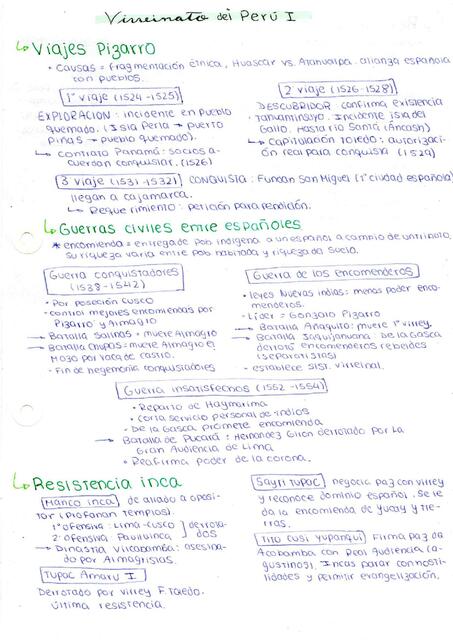 Virreinato del Perú I
Viajes Pizarro
• Causas = Fragmentación étnica, Huascar vs. Atahualpa. alianza española
con pueblos.
1° viaje (1524 - 1525)
EXPLORACION: incidente en pueblo
quemado. (Isla Perla → puerto
Piñas → pueblo quemado).
→ contrato Panamá: socios a-
cuerdan conquistar. (1526)
2 viaje (1526-1528)
DESCUBRIDOR confirma existencia
Tahuantinsuyo. Incidente isla del
Gallo. Hasta río Santa (Áncash)
→ Capitulación Toledo: autorizaci-
ón real para conquista (1529)
3 viaje (1531 - 1532) CONQUISTA: Fundan San Miguel (1° ciudad española)
llegan a cajamarca.
→ Requerimiento: petición para rendición.
Guerras civiles entre españoles
* encomienda = entrega de pob indígena a un español a cambio de un tributo,
su riqueza varia entre pob habitada y riqueza de suelo.
Guerra conquistadores
(1538 - 1542)
• Por posesión Cusco
• control mejores encomiendas por
Pizarro y Almagro
→ Batalla Salinas = muere Almagro
→ Batalla Chupas = muere Almagro el
Mozo por Vaca de Castro.
• Fin de hegemonia conquistadores
Guerra de los encomenderos
• leyes Nuevas indias: menos poder enco-
menderos.
• Líder = Gonzalo Pizarro
→ Batalla Añaquito: muere 1° virrey.
→ Batalla Jaquijahuana: De la Gasca
derrotó encomenderos rebeldes
(separatistas)
• establece sist. virreinal.
Guerra insatisfechos (1552 - 1554)
• Reparto de Huaynarima
• Corta servicio personal de indios
• De la Gasca promete encomienda
→ Batalla de Pucará: Hernández Girón derrotado por la
Gran Audiencia de Lima
• Reafirma poder de la corona.
Resistencia inca
Manco inca de aliado a oposi-
tor (Profanan templos).
1° ofensiva: Lima-Cusco
2° ofensiva
derrota-
dos
→ Dinastía Vilcabamba: asesina-
do por Almagristas.
Tupac Amaru I
Derrotado por virrey F. Toledo.
última resistencia.
Sayri Tupac negocia paz con virrey
y reconoce dominio español. Se le
da la encomienda de Yucay y tie-
rras.
Tito Cusi Yupanqui Firma paz de
Acobamba con Real Audiencia (a-
gustinos). Incas paran hosti-
lidades y permitir evangelización.